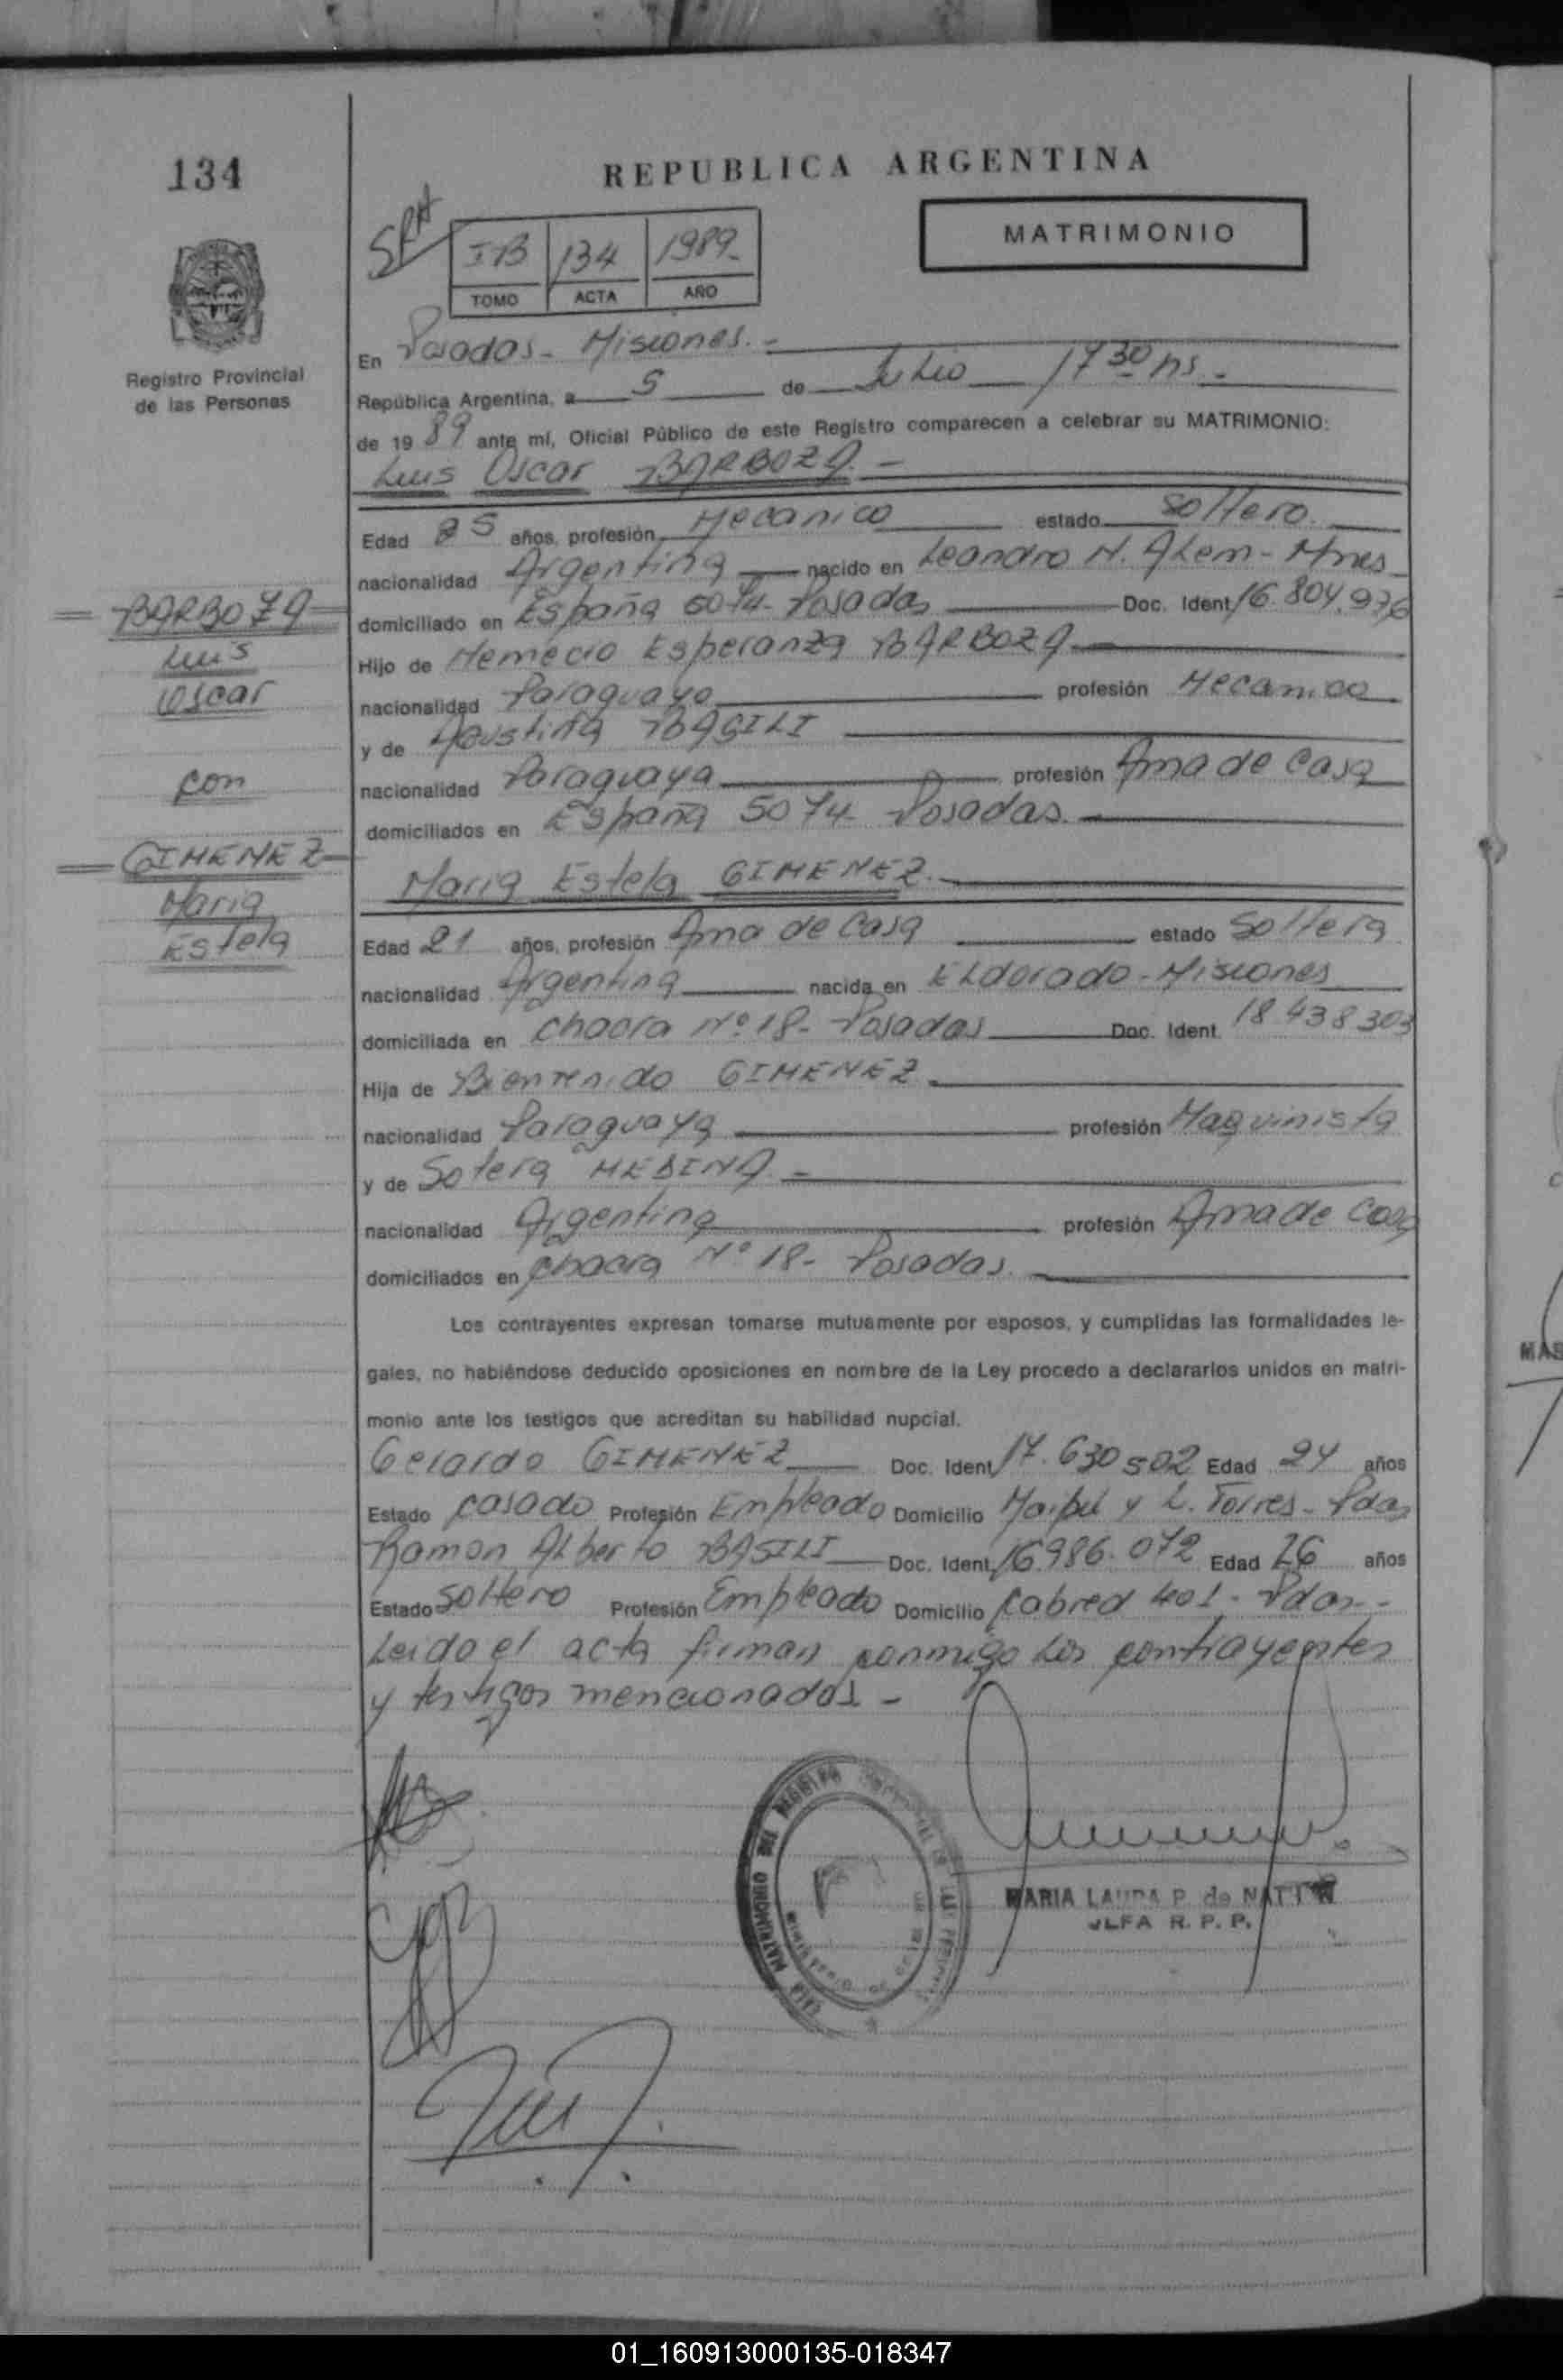 134
REPUBLICA ARGENTINA
MATRIMONIO
I-B 134 1989-
TOMO ACTA AÑO
Registro Provincial
de las Personas
En Posadas - Misiones. -
República Argentina, a 5 de Julio 17 30 hs. -
de 19 89 ante mí, Oficial Público de este Registro comparecen a celebrar su MATRIMONIO:
Luis Oscar BARBOZA. -
Edad 25 años, profesión Mecanico estado Soltero.
nacionalidad Argentina nacido en Leandro N. Alem - Mnes
domiciliado en España 5074 - Posadas Doc. Ident. 16.804.976
Hijo de Nemecio Esperanza BARBOZA
nacionalidad Paraguayo profesión Mecanico
y de Agustina BASILI
nacionalidad Paraguaya profesión Ama de Casa
domiciliados en España 5074 - Posadas.
Maria Estela GIMENEZ.
Edad 21 años, profesión Ama de Casa estado Soltera
nacionalidad Argentina nacida en ELdorado - Misiones
domiciliada en Chacra Nº 18 - Posadas Doc. Ident. 18 438 303
Hija de Bienvenido GIMENEZ.
nacionalidad Paraguaya profesión Maquinista
y de Sotera MEDINA. -
nacionalidad Argentina profesión Ama de Casa
domiciliados en Chacra Nº 18 - Posadas.
Los contrayentes expresan tomarse mutuamente por esposos, y cumplidas las formalidades le-
gales, no habiéndose deducido oposiciones en nombre de la Ley procedo a declararlos unidos en matri-
monio ante los testigos que acreditan su habilidad nupcial.
Gerardo GIMENEZ Doc. Ident. 17.630 502 Edad 24 años
Estado Casado Profesión Empleado Domicilio Maipú y L. Torres - Pdas
Ramon ALberto BASILI Doc. Ident. 16.986.072 Edad 26 años
Estado Soltero Profesión Empleado Domicilio Cabred 401 - Pdas. -
Leido el acta firman conmigo los contrayentes
y testigos mencionados -
BARBOZA
Luis
Oscar
con
GIMENEZ
Maria
Estela
MARIA LAURA P. de
R. P. P.
MAS
01_160913000135-018347